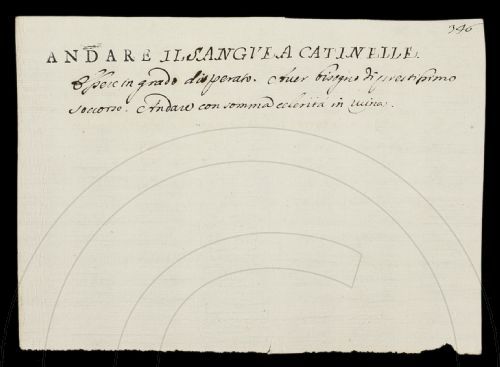 346
ANDARE IL SANGUE A CATINELLE.
Essere in grado disperato. Aver bisogno di prestissimo
soccorso. Andare con somma celerità in ruina.